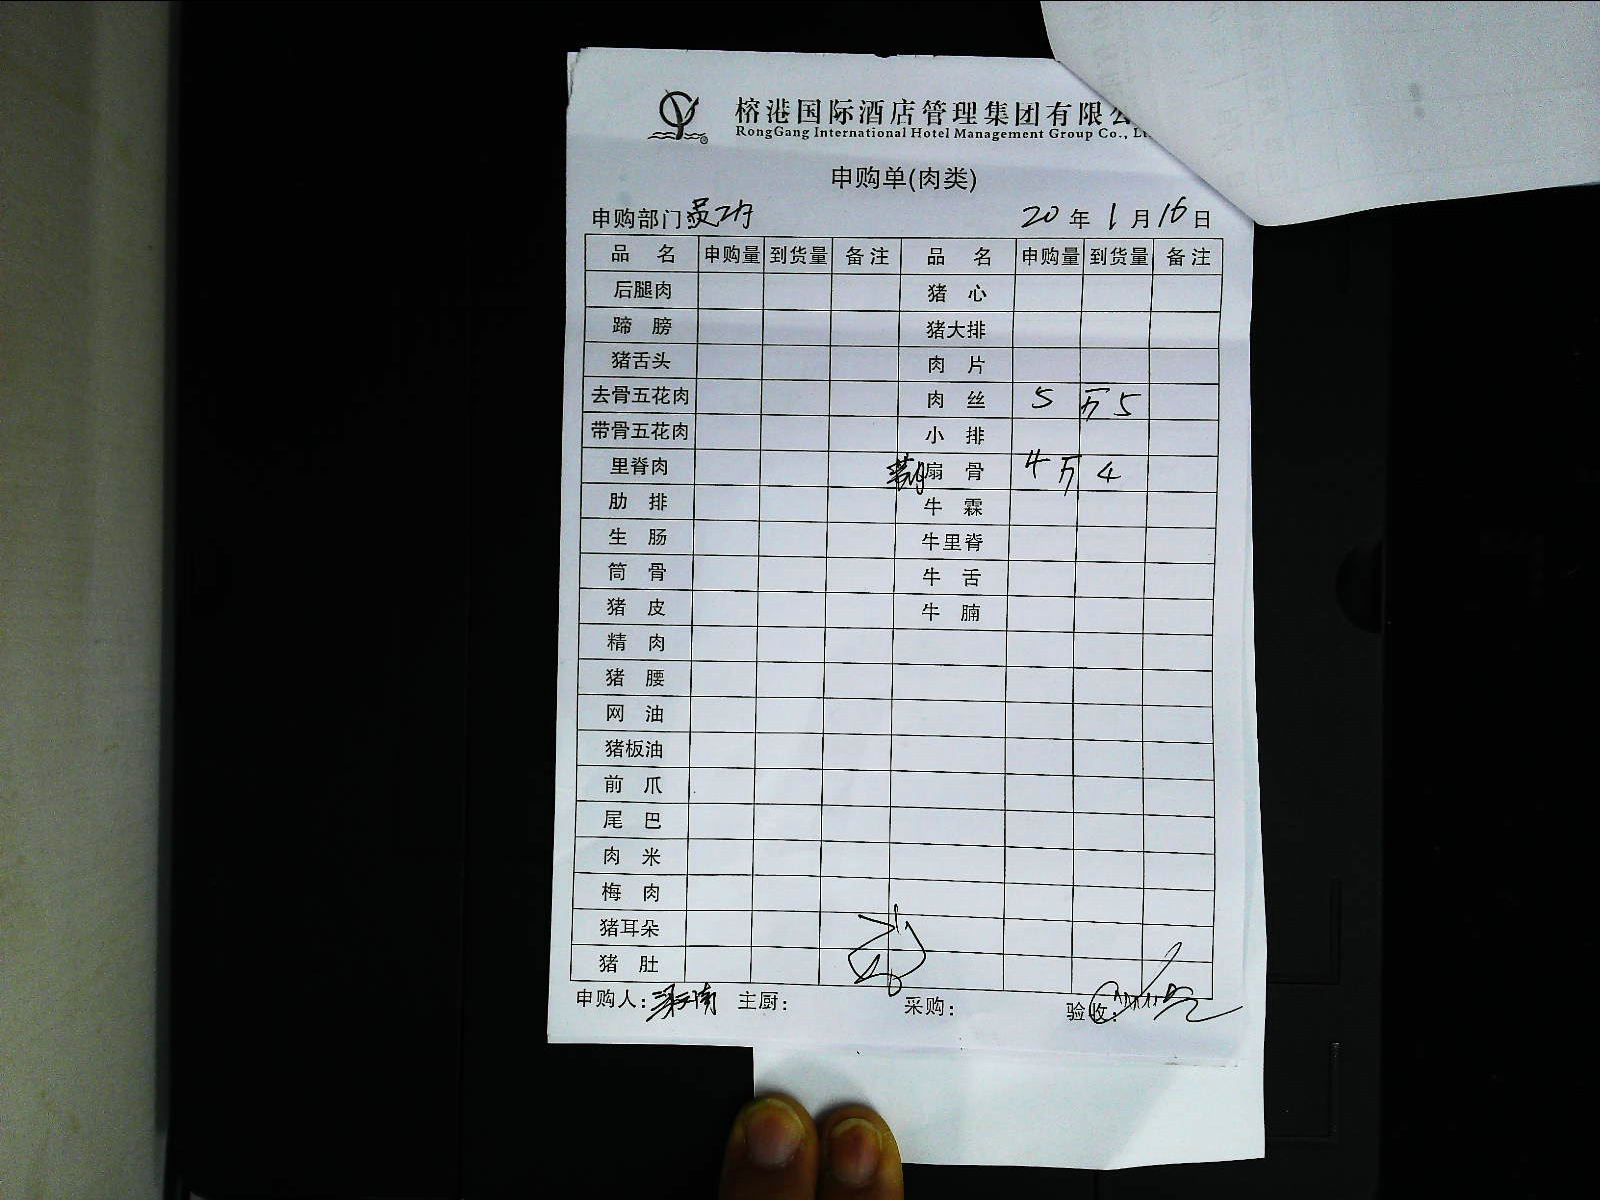 榕港国际酒店管理集团有限公
RongGang International Hotel Management Group Co., Lt
申购单(肉类)
申购部门 员工 20 年 1 月 16 日
品 名 申购量 到货量 备注 品 名 申购量 到货量 备注
后腿肉 猪 心
蹄 膀 猪大排
猪舌头 肉 片
去骨五花肉 肉 丝 5 斤 5
带骨五花肉 小 排
里脊肉 扇 骨 4 斤 4
肋 排 牛 霖
生 肠 牛里脊
筒 骨 牛 舌
猪 皮 牛 腩
精 肉
猪 腰
网 油
猪板油
前 爪
尾 巴
肉 米
梅 肉
猪耳朵
猪 肚
申购人: 主厨: 采购: 验收: